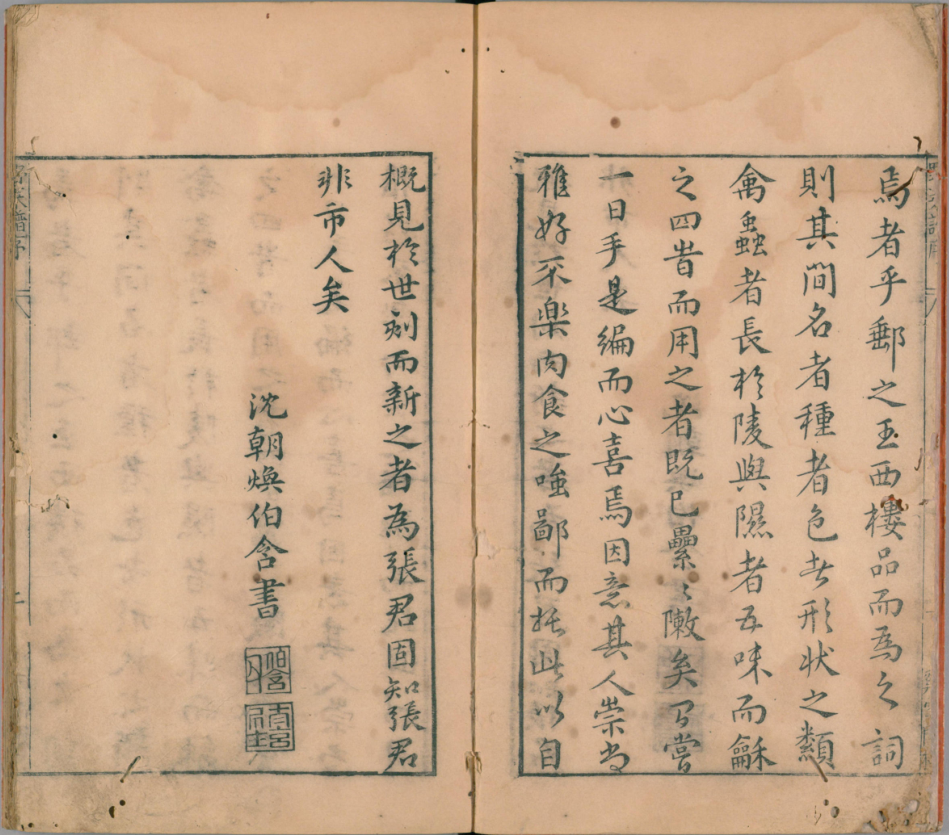 焉者乎郵之王西樓品而為之詞
則其間名者種者色者形狀之類
禽蟲者長於陵與隰者五味而龢
之四旹而用之者既已纍〻矣乃嘗
一日手是編而心喜焉因意其人崇尚
雅好不樂肉食之嗤鄙而托此以自
概見於世刻而新之者為張君固知張君
非市人矣
沈朝煥伯含書